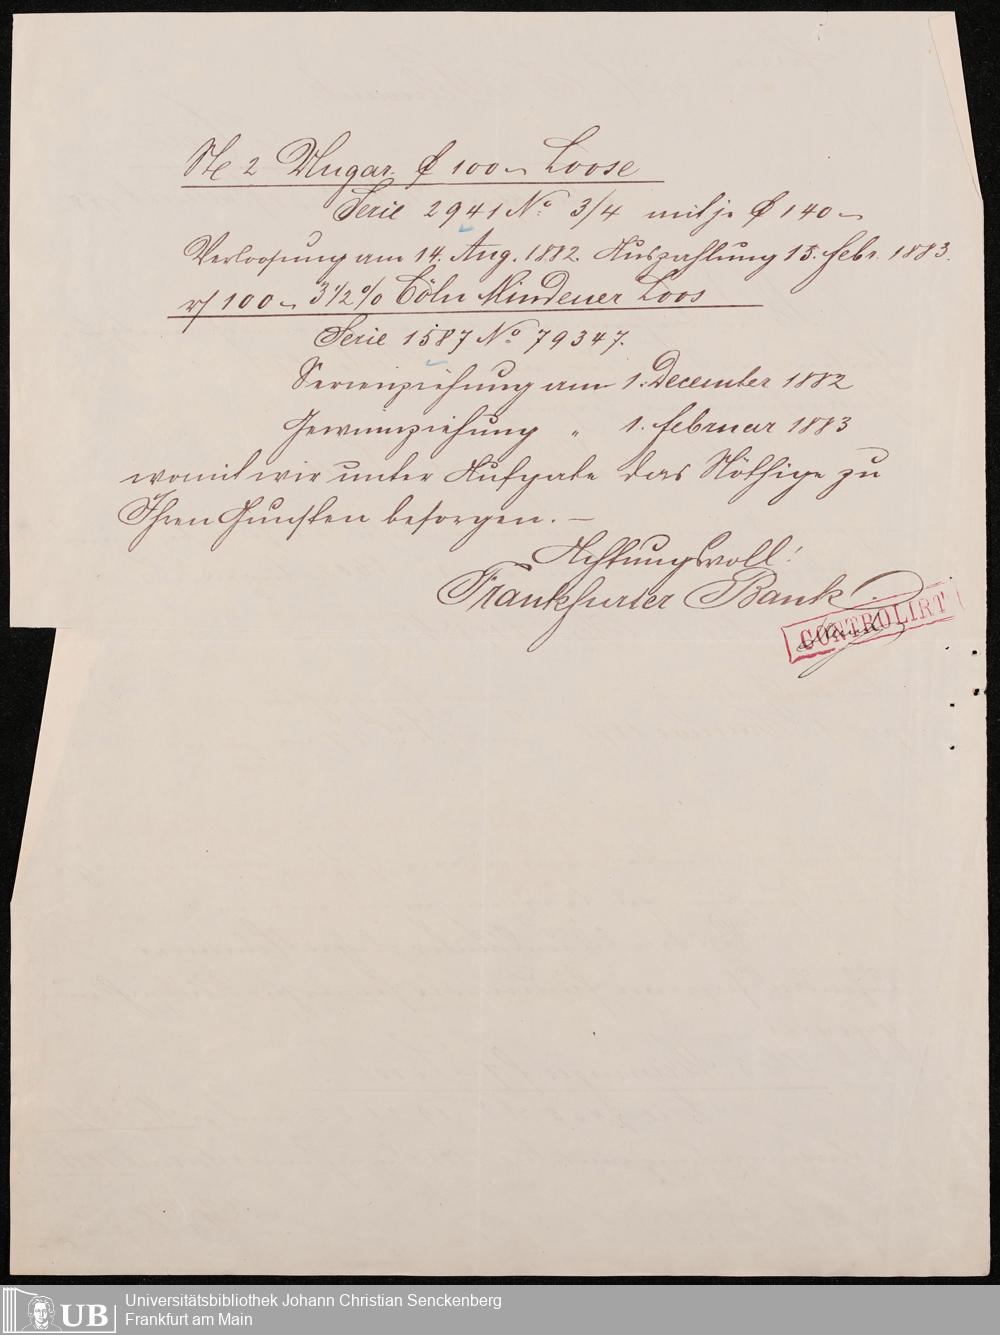 St 2 Ungar. fl 100 Loose
Serie 2941 No. 3/4 mit je fl 140
Verloosung am 14. Aug. 1882. Auszahlung 15. Febr. 1883.
100 3 1/2 % Cöln Mindener Loos
Serie 1587 No. 79347.
Serienziehung am 1. December 1882
Gewinnziehung " 1. Februar 1883
womit wir unter Aufgabe das Nöthige zu
Ihren Gunsten besorgen. –
Achtungsvoll!
Frankfurter Bank.
CONTROLIRT
UB
Universitätsbibliothek Johann Christian Senckenberg
Frankfurt am Main